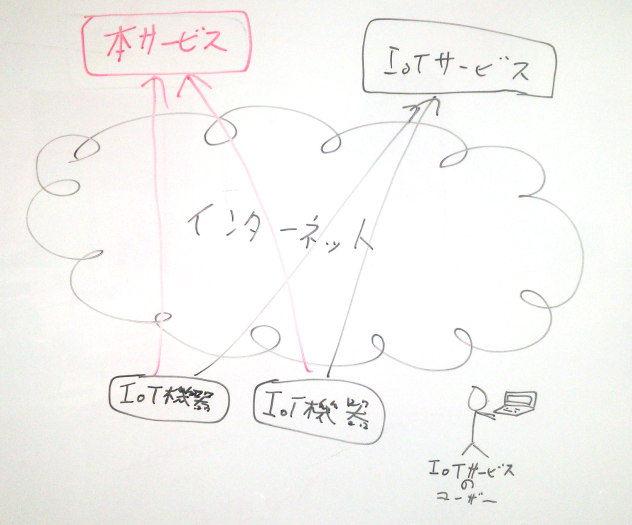 本サービス
IoTサービス
インターネット
IoT機器
IoT機器
IoTサービス
の
ユーザー